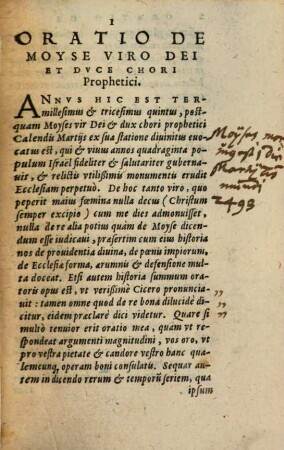 I
ORATIO DE
MOYSE VIRO DEI
ET DVCE CHORI
Prophetici.
ANNVS HIC EST TER-
millesimus & tricesimus quintus, post-
quam Moyses vir Dei & dux chori prophetici
Calendis Martijs ex sua statione diuinitus euo-
catus est, qui & viuus annos quadraginta po-
pulum Israël fideliter & salutariter guberna-
uit, & relictis vtilißimis monumentis erudit
Ecclesiam perpetuò. De hoc tanto viro, quo
peperit maius fœmina nulla decus (Christum
semper excipio) cum me dies admonuisset, nul-
la de re alia potius quàm de Moyse dicen-
dum esse iudicaui, præsertim cum eius historia
nos de prouidentia diuina, de pœnis impiorum,
de Ecclesiæ forma, ærumnis & defensione mul-
ta doceat. Etsi autem historia summum orato-
ris opus est, vt verißimè Cicero pronuncia-
uit: tamen omne quod de re bona dilucidè di-
citur, eidem præclarè dici videtur. Quare si
multò tenuior erit oratio mea, quàm vt re-
spondeat argumenti magnitudini, vos oro, vt
pro vestra pietate & candore vestro hanc qua-
lemcunq; operam boni consulatis. Sequar au-
tem in dicendo rerum & temporũ seriem, qua
ipsum
Moyses
mundi
2493